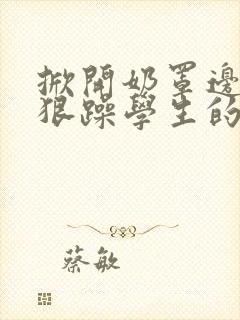 掀開奶罩邊
狠躁學生的
蔡敏